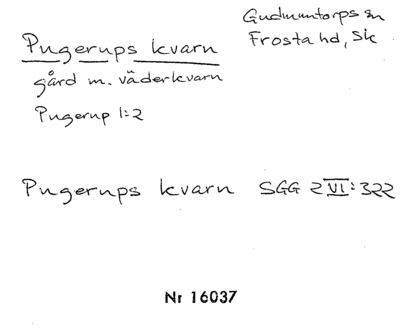 Gudmuntorps sn
Frosta hd, Sk
Pugerups kvarn
gård m. väderkvarn
Pugerup 1:2
Pugerups kvarn SGG 2 VI: 322
Nr 16037